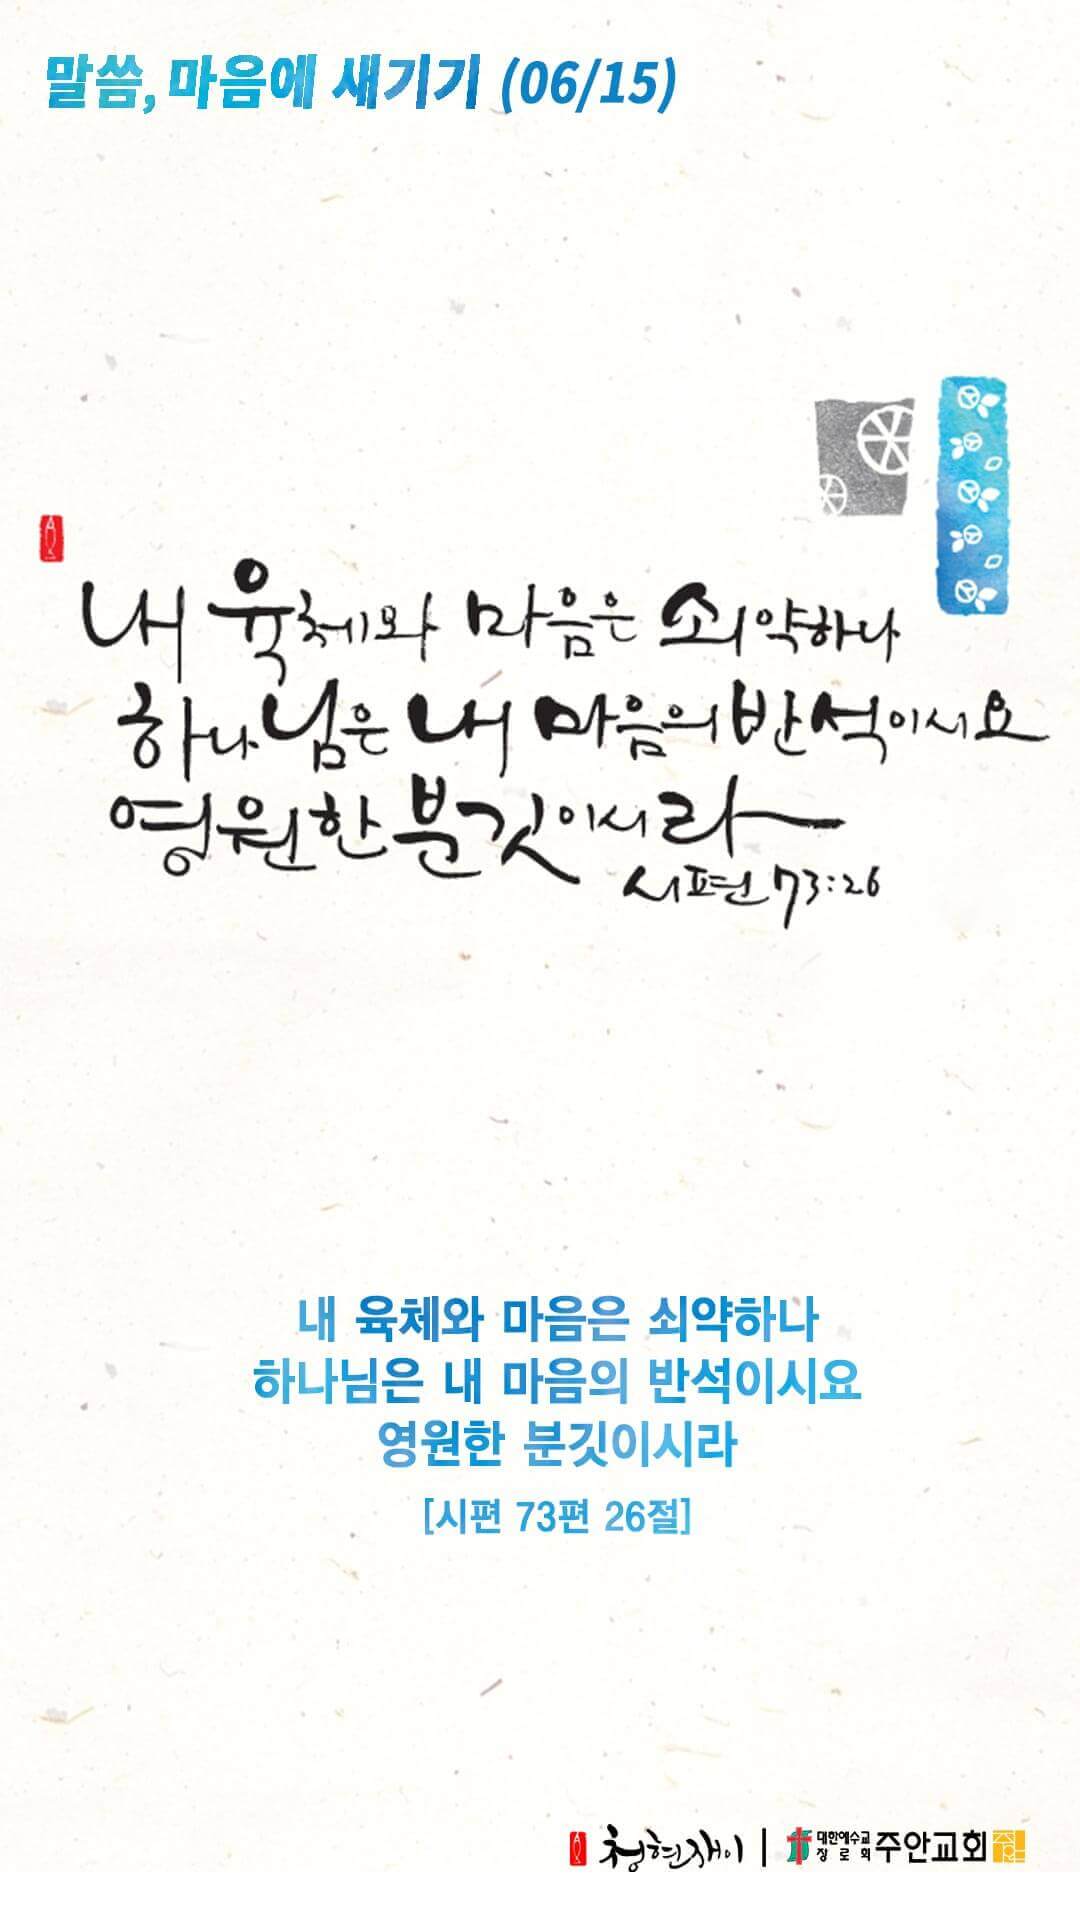 말씀, 마음에 새기기 (06/15)
내 육체와 마음은 쇠약하나
하나님은 내 마음의 반석이시요
영원한 분깃이시라
시편 73:26
내 육체와 마음은 쇠약하나
하나님은 내 마음의 반석이시요
영원한 분깃이시라
[시편 73편 26절]
청현재이 | 대한예수교 장로회 주안교회